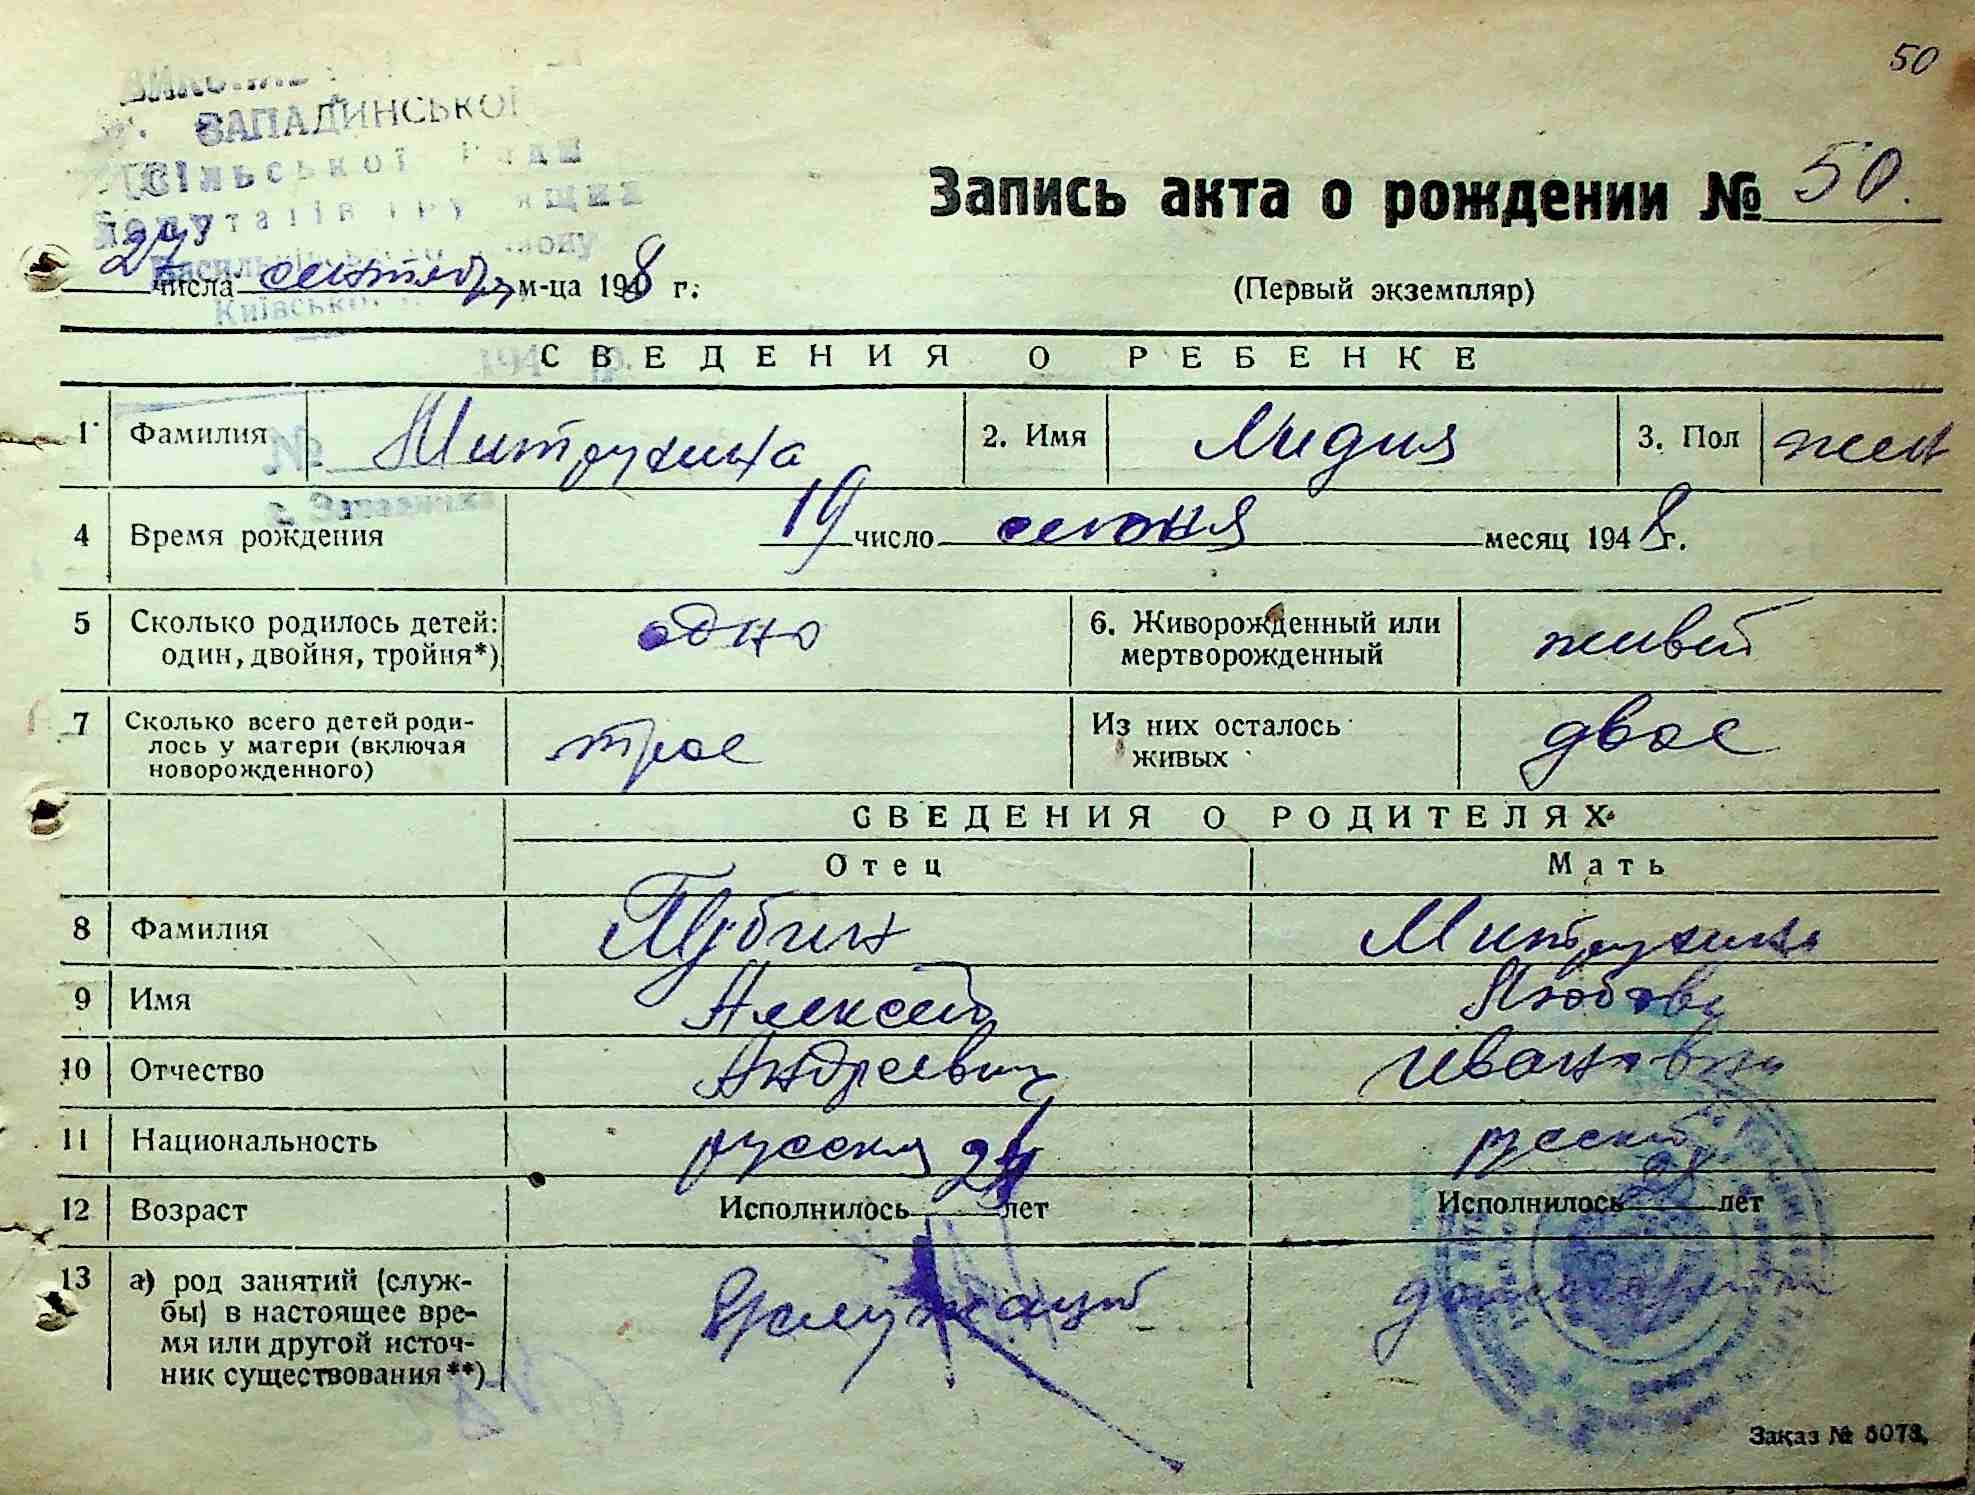 50
ЗАПАДИНСЬКОЇ
Сільської Ради
Київської
Запись акта о рождении № 50.
24 числа сентября м-ца 1948 г.
(Первый экземпляр)
СВЕДЕНИЯ О РЕБЕНКЕ
1 Фамилия Митрухина 2. Имя Лидия 3. Пол жен
№
с. Западинка
4 Время рождения 19 число июня месяц 1948 г.
5 Сколько родилось детей: один, двойня, тройня*) одно 6. Живорожденный или мертворожденный живой
7 Сколько всего детей родилось у матери (включая новорожденного) трое Из них осталось живых двое
СВЕДЕНИЯ О РОДИТЕЛЯХ
Отец Мать
8 Фамилия Губин Митрухина
9 Имя Алексей Любовь
10 Отчество Андреевич Ивановна
11 Национальность русский
12 Возраст Исполнилось 24 лет Исполнилось 28 лет
13 а) род занятий (служ-
бы) в настоящее вре-
мя или другой источ-
ник существования**)
Заказ № 5073.